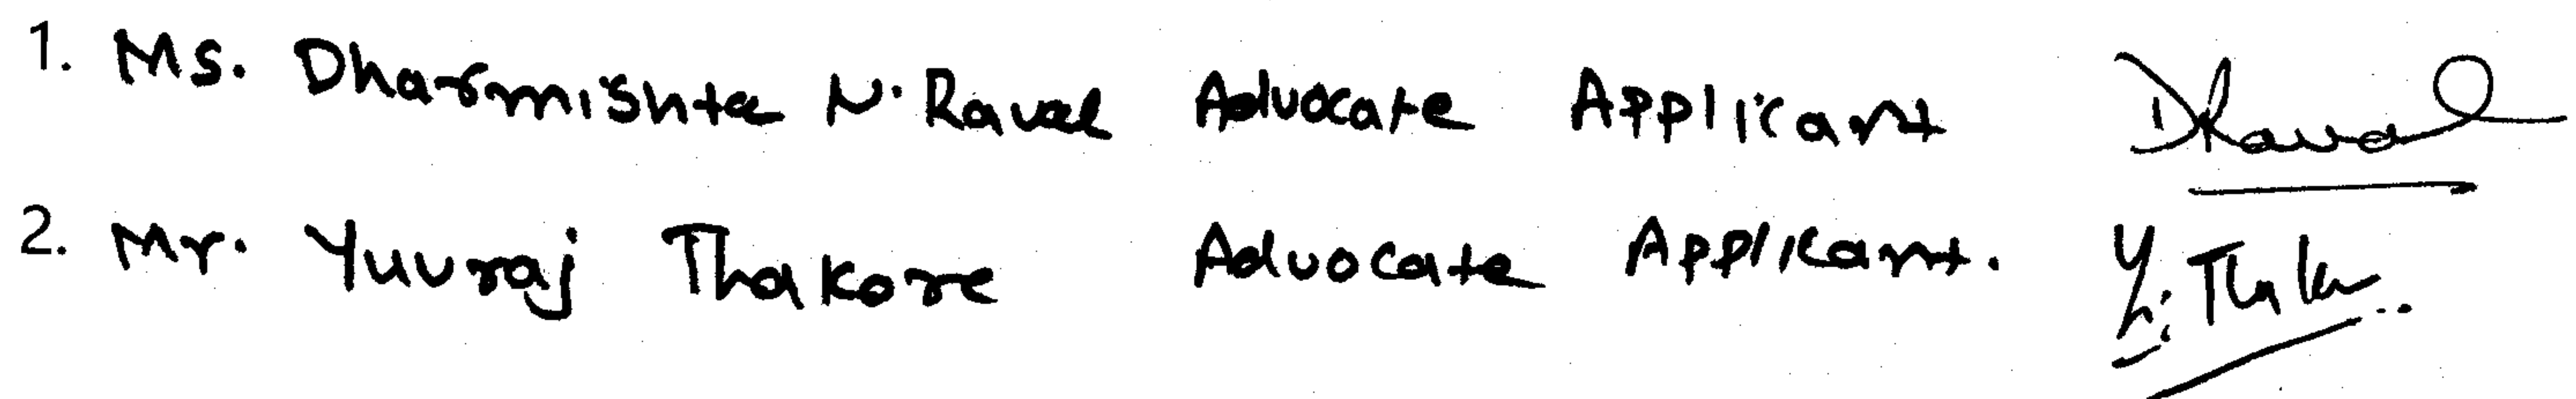 1. Ms. Dharmishta N. Raval Advocate Applicant DRaval
2. Mr. Yuvraj Thakore Advocate Applicant. Y. Thakor..